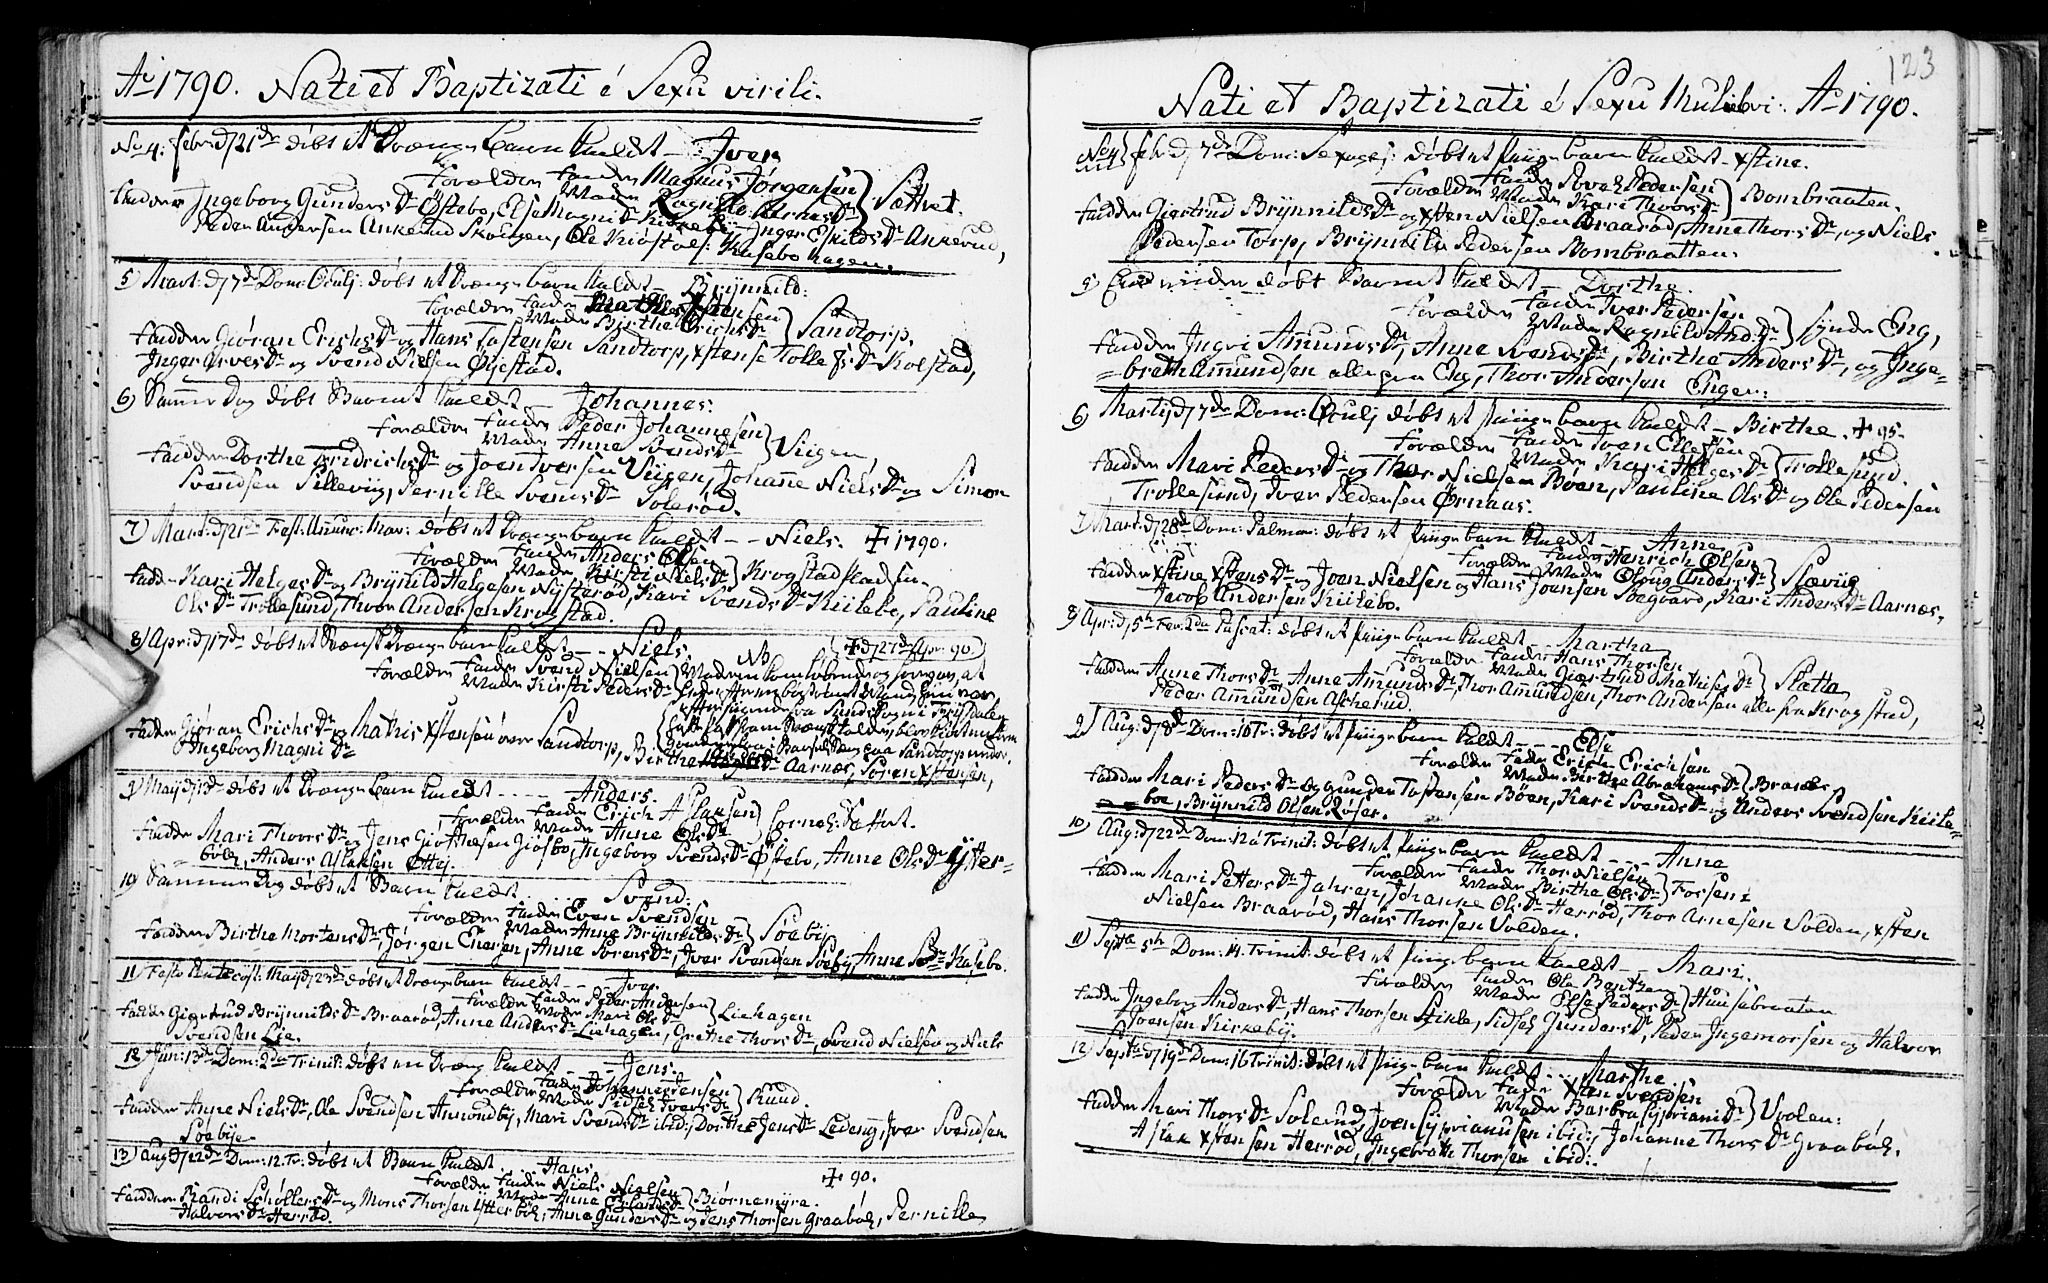 Aº 1790. Nati et Baptizati é Sexu virili.
No 4: Febr: d 21de døbt et Drænge Barn kaldt - Iver
Forældre Fader Magnus Jørgensen
Moder Ragnille Arnes Dr } Sættret.
Faddere Ingeborg Gunders Dr Østebø, Else Magni Dr Kirkebø, Inger Eskilds Dr Ankerud,
Peder Andersen Ankerud Skoven, Ole Kiøstols: Husebo hagen.
5) Mart: d 7de Dom: Oculj: døbt et Drænge barn kaldt - Brynnild:
Forældre Fader Xstensen
Moder Birthe Erichs Dr } Sandtorp.
Fadder Giøran Erichs Dr og Hans Tostensen Sandtorp, Xstense Tollefs Dr Kolstad,
Inger Arves Dr og Svend Nielsen Øgestad.
6) Samme Dag døbt Barnet kaldt - Johannes:
Forældre Fader Peder Johannesen
Moder Anne Svends Dr } Viigen,
Fadder Dorthe Fridrichs Dr og Joen Iversen Viigen, Johanne Niels Dr og Simon
Svendsen Sillevig, Pernille Svends Dr Solerød.
7) Mart: d 21de Fest: Anunc: Mar: døbt et Drænge barn kaldt - - Niels. + 1790.
Forældre Fader Anders Olsen
Moder Kirsti Niels Dr } Krogstad
Fadder Kari Helges Dr og Brynild Helgesen Nysterød, Kari Svends Dr Kiilebo, Pauline
Ols Dr Trollesund, Thor Andersen Krogstad.
8) Apr: d 17de døbt et Drænge barn kaldt - - Niels. + d 27de Apr: 90.
Forældre Fader Svend Nielsen
Moder Kirsti Peders Dr
NB
Fadder Giøran Erichs Dr og Mathis Xstensen øvre Sandtorp, Birthe Dr Aarnæs, Søren Xstensen,
Ingeborg Magni Dr
9) Maij d 13de døbt et Drænge barn kaldt - - - - Anders.
Forældre Fader Erich Aslaksen
Moder Anne Ols Dr
Fadder Mari Thors Dr og Jens Giøsthesen Giøsbo, Ingeborg Svends Dr Østebo, Anne Ols Dr Ytter-
bøle, Anders Aslaksen Ottej.
10) Samme Dag døbt et Barn kaldt - - - Svend.
Forældre Fader Even Svendsen
Moder Anne Brynnilds Dr } Søebÿ
Fadder Birthe Mortens Dr, Jørgen Enersen, Anne Sørens Dr, Iver Svendsen Søebÿ, Anne Dr Kasebo.
11 Festo Pentecost: Maij d 23de døbt et Drænge barn kaldt - - - Ivar
Forældre Fader Peder Andersen
Moder Mari Ols Dr } Liehagen
Fadder Giertrud Brynnilds Dr Braarød, Anne Anders Dr Liehagen, Grethe Thors Dr, Svend Nielsen og Niels
Svendsen Lie.
12 Jun: 13de Dom: 2da Trinit: døbt en Dræng kaldt - - - Jens.
Forældre Fader Johannes Jensen
Moder Sidsel Ivers Dr } Ruud.
Fadder Anne Niels Dr, Ole Svendsen Amondbÿ, Mari Svends Dr ibid: Dorthe Jens Dr Ledeng, Iver Svendsen
Søebÿe
13) Aug d 22de Dom: 12. Tr: døbt et Barn kaldt - - Hans + 90.
Forældre Fader Niels Nielsen
Moder Anne Erlands Dr } Biørnemÿra.
Fadder Randi Schøllers Dr og Mons Thorsen Ytterbøl, Anne Gunders Dr og Jens Thorsen Graabøl, Pernille
Halvors Dr Herrød.
123
Nati et Baptizati é Sexu Muliebri: Aº 1790.
No 4) Feb: d 7de Dom: Sexages: døbt et Piige barn kaldt - Xstine.
Forældre Fader Arve Pedersen
Moder Kari Thors Dr } Bombraaten.
Fadder Giertrud Brynnilds Dr og Xsten Nielsen Braarød, Anne Thors Dr, og Niels
Pedersen Torp, Brynnild Pedersen Bombraatten.
5 døbt Barnet kaldt - Dorthe.
Forældre Fader Iver Pedersen
Moder Ragnild And: Dr } Søndre Eng,
Fadder Ingri Amunds Dr, Anne Svends Dr, Birthe Anders Dr, og Inge-
breth Amundsen alle fra Eng, Thor Andersen Engen:
6) Martij d 7de Dom: Oculj døbt et Piige barn kaldt - Birthe. + 95.
Forældre Fader Iven Ellefsen
Moder Kari Helges Dr } Trollesund.
Fadder Mari Peders Dr og Thor Nielsen Bøen, Pauline Ols Dr og Ole Pedersen
Trollesund, Iver Pedersen Ørnaas.
7) Mart: d 28de Dom: Palmar: døbt et Piige barn kaldt - - Anne
Forældre Fader Henrich Olsen
Moder Oloug Anders Dr } Slævig
Fadder Xstine Xstens Dr og Joen Nielsen og Hans Joensen Soegaard, Kari Anders Dr Aarnæs,
Jacob Andersen Kiilebo.
8) Apr: d 5te Fer: 2da Pascat: døbt et Piige barn kaldt - Martha
Forældre Fader Hans Thorsen
Moder Giertrud Mathises Dr } Slætta
Fadder Anne Thors Dr, Anne Amunds Dr, Thor Amundsen, Thor Andersen alle fra Krogstad,
Peder Amundsen Ascherud.
9) Aug: d 8de Dom: 10 Tr: døbt et Piige barn kaldt - - - Else
Forældre Fader Erich Erichsen
Moder Birthe Abrahams Dr } Braaten
Fadder Mari Peders Dr og Gunder Tostensen Bøen, Kari Svends Dr og Anders Svendsen Kiile-
boe, Brynnild Olsen Røser.
10) Aug: d 22de Dom: 12a Trinit: døbt et Piige barn kaldt - - - Anne
Forældre Fader Thor Nielsen
Moder Birthe Ols Dr } Forsen:
Fadder Mari Petters Dr Jahren, Johanne Ols Dr Herrød, Thor Arnesen Volden, Xsten
Nielsen Braarød, Hans Thorsen Volden.
11) Septr 5te Dom: 14. Trinit: døbt et Piige barn kaldt - - Mari.
Forældre Fader Ole
Moder Else Peders Dr } Huusebraaten
Fadder Ingeborg Anders Dr, Hans Thorsen Stikle, Sidsel Gunders Dr, Peder Ingemorsen og Halvor
Joensen Kirkebÿ.
12) Septr d 19de Dom: 16 Trinit: døbt et Piige barn kaldt - - - Marthe
Forældre Fader Xsten Svendsen
Moder Barbra Syprians Dr } Volen:
Fadder Mari Thors Dr Solerud, Joen Syprianusen ibid:, Johanne Thors Dr Graabøl,
Aslak Xstensen Herrød, Ingebreth Thorsen ibid:.